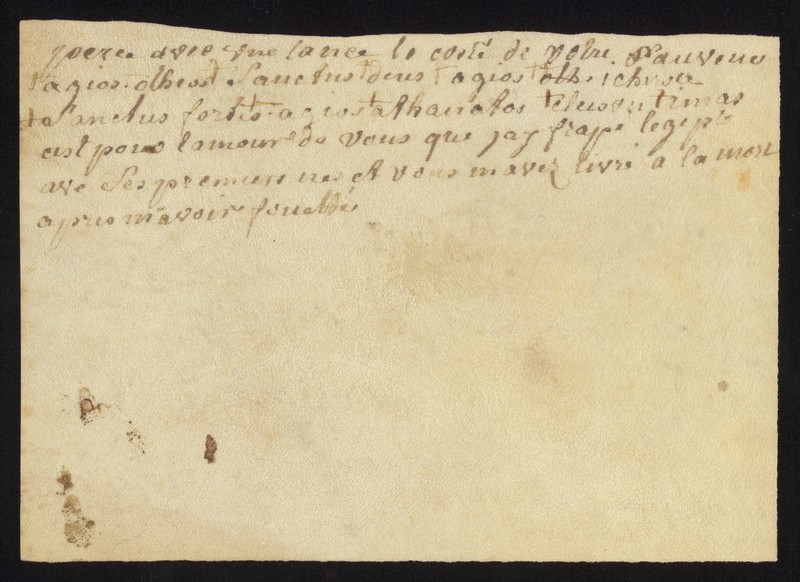 percé avec une lance le costé de votre Sauveur
+ agios + otheos + Sanctus + deus + agios + ischiros
+ Sanctus fortis + agios + athanatos + eleison + imas
cest pour lamour de vous que jay frapé legipte
ave Ses premiers nes et vous mavez livré a la mort
apres mavoir fouetté